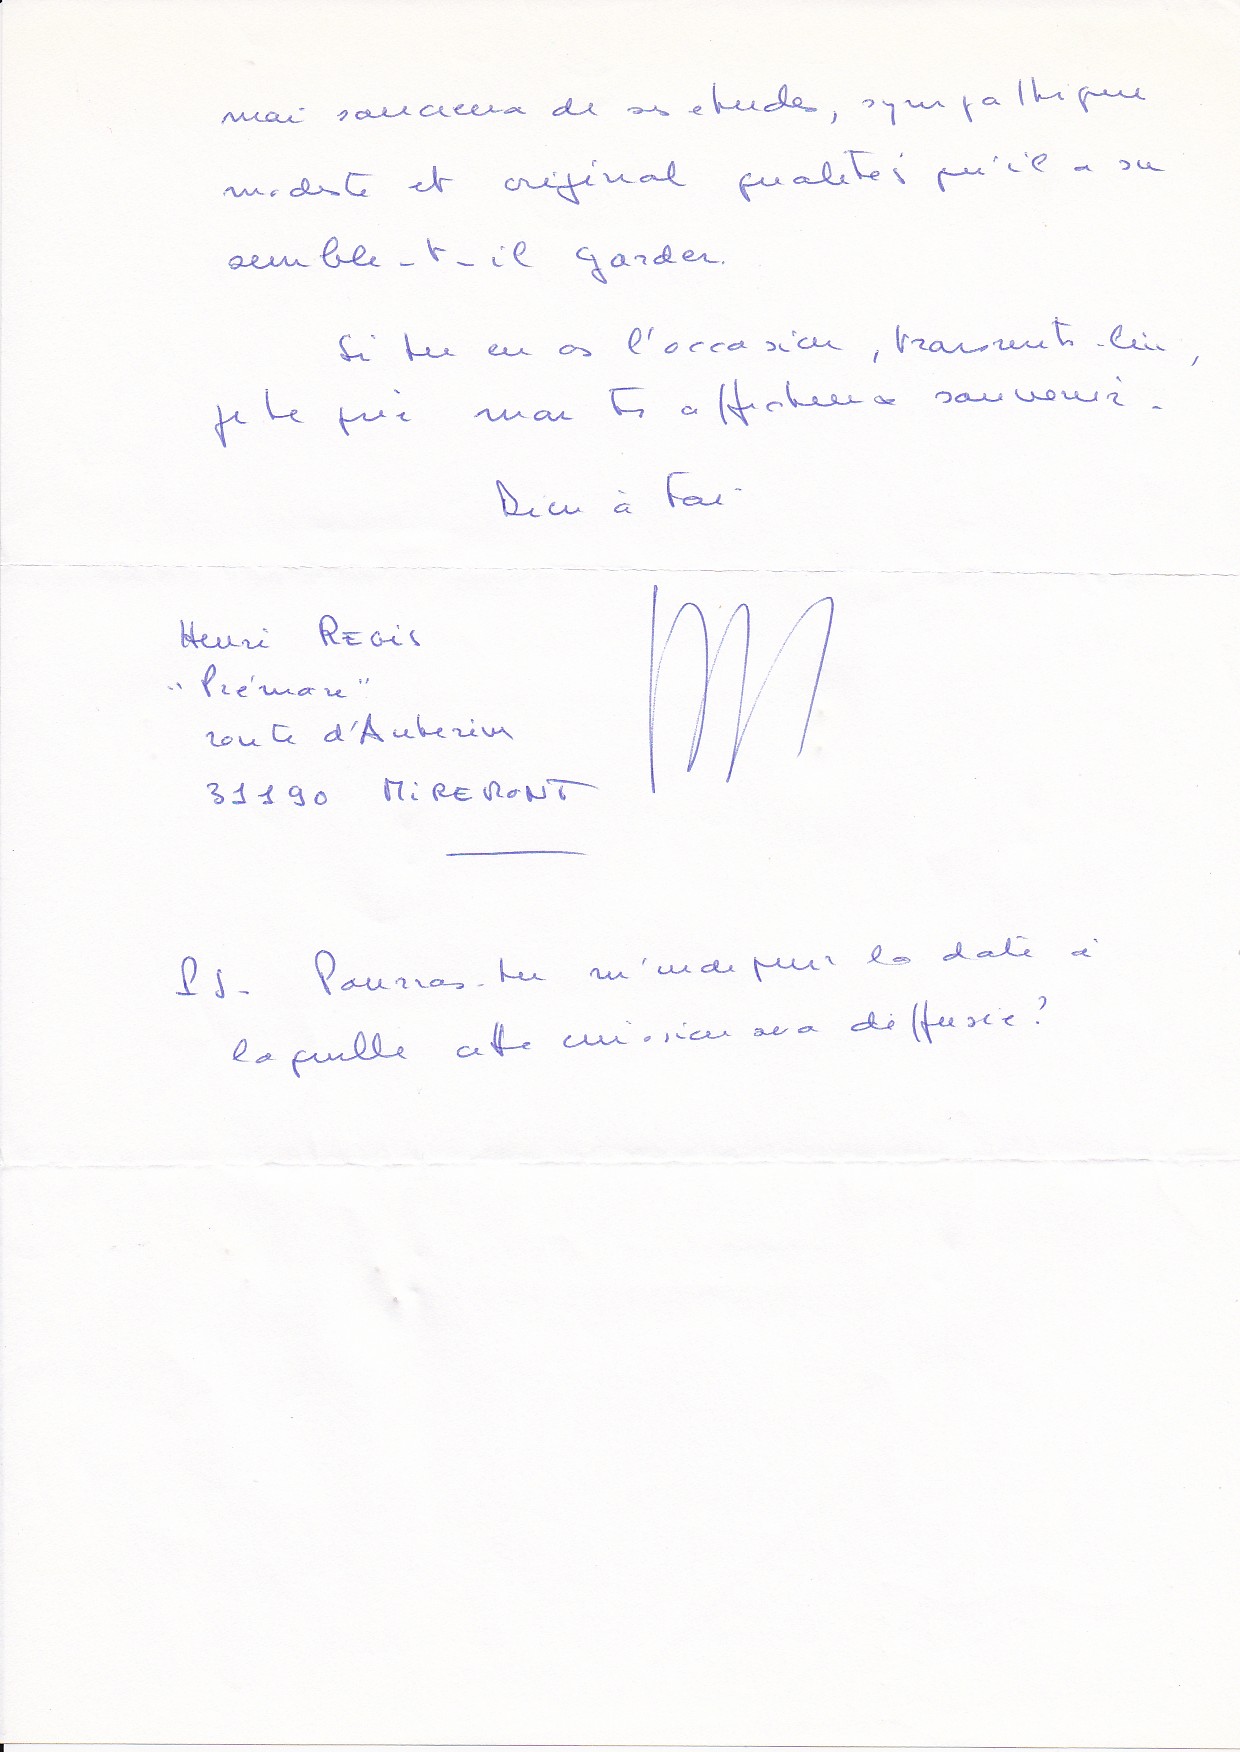 mais soucieux de ses études, sympathique
modeste et original qualités qu'il a su
semble-t-il garder.
Si tu en as l'occasion, transmets-lui,
je te prie mon très affectueux souvenir.
Bien à toi
Henri REGIS
"Prémare"
route d'Auterive
31190 MIREMONT
PS - Pourras-tu m'indiquer la date à
laquelle cette émission sera diffusée?